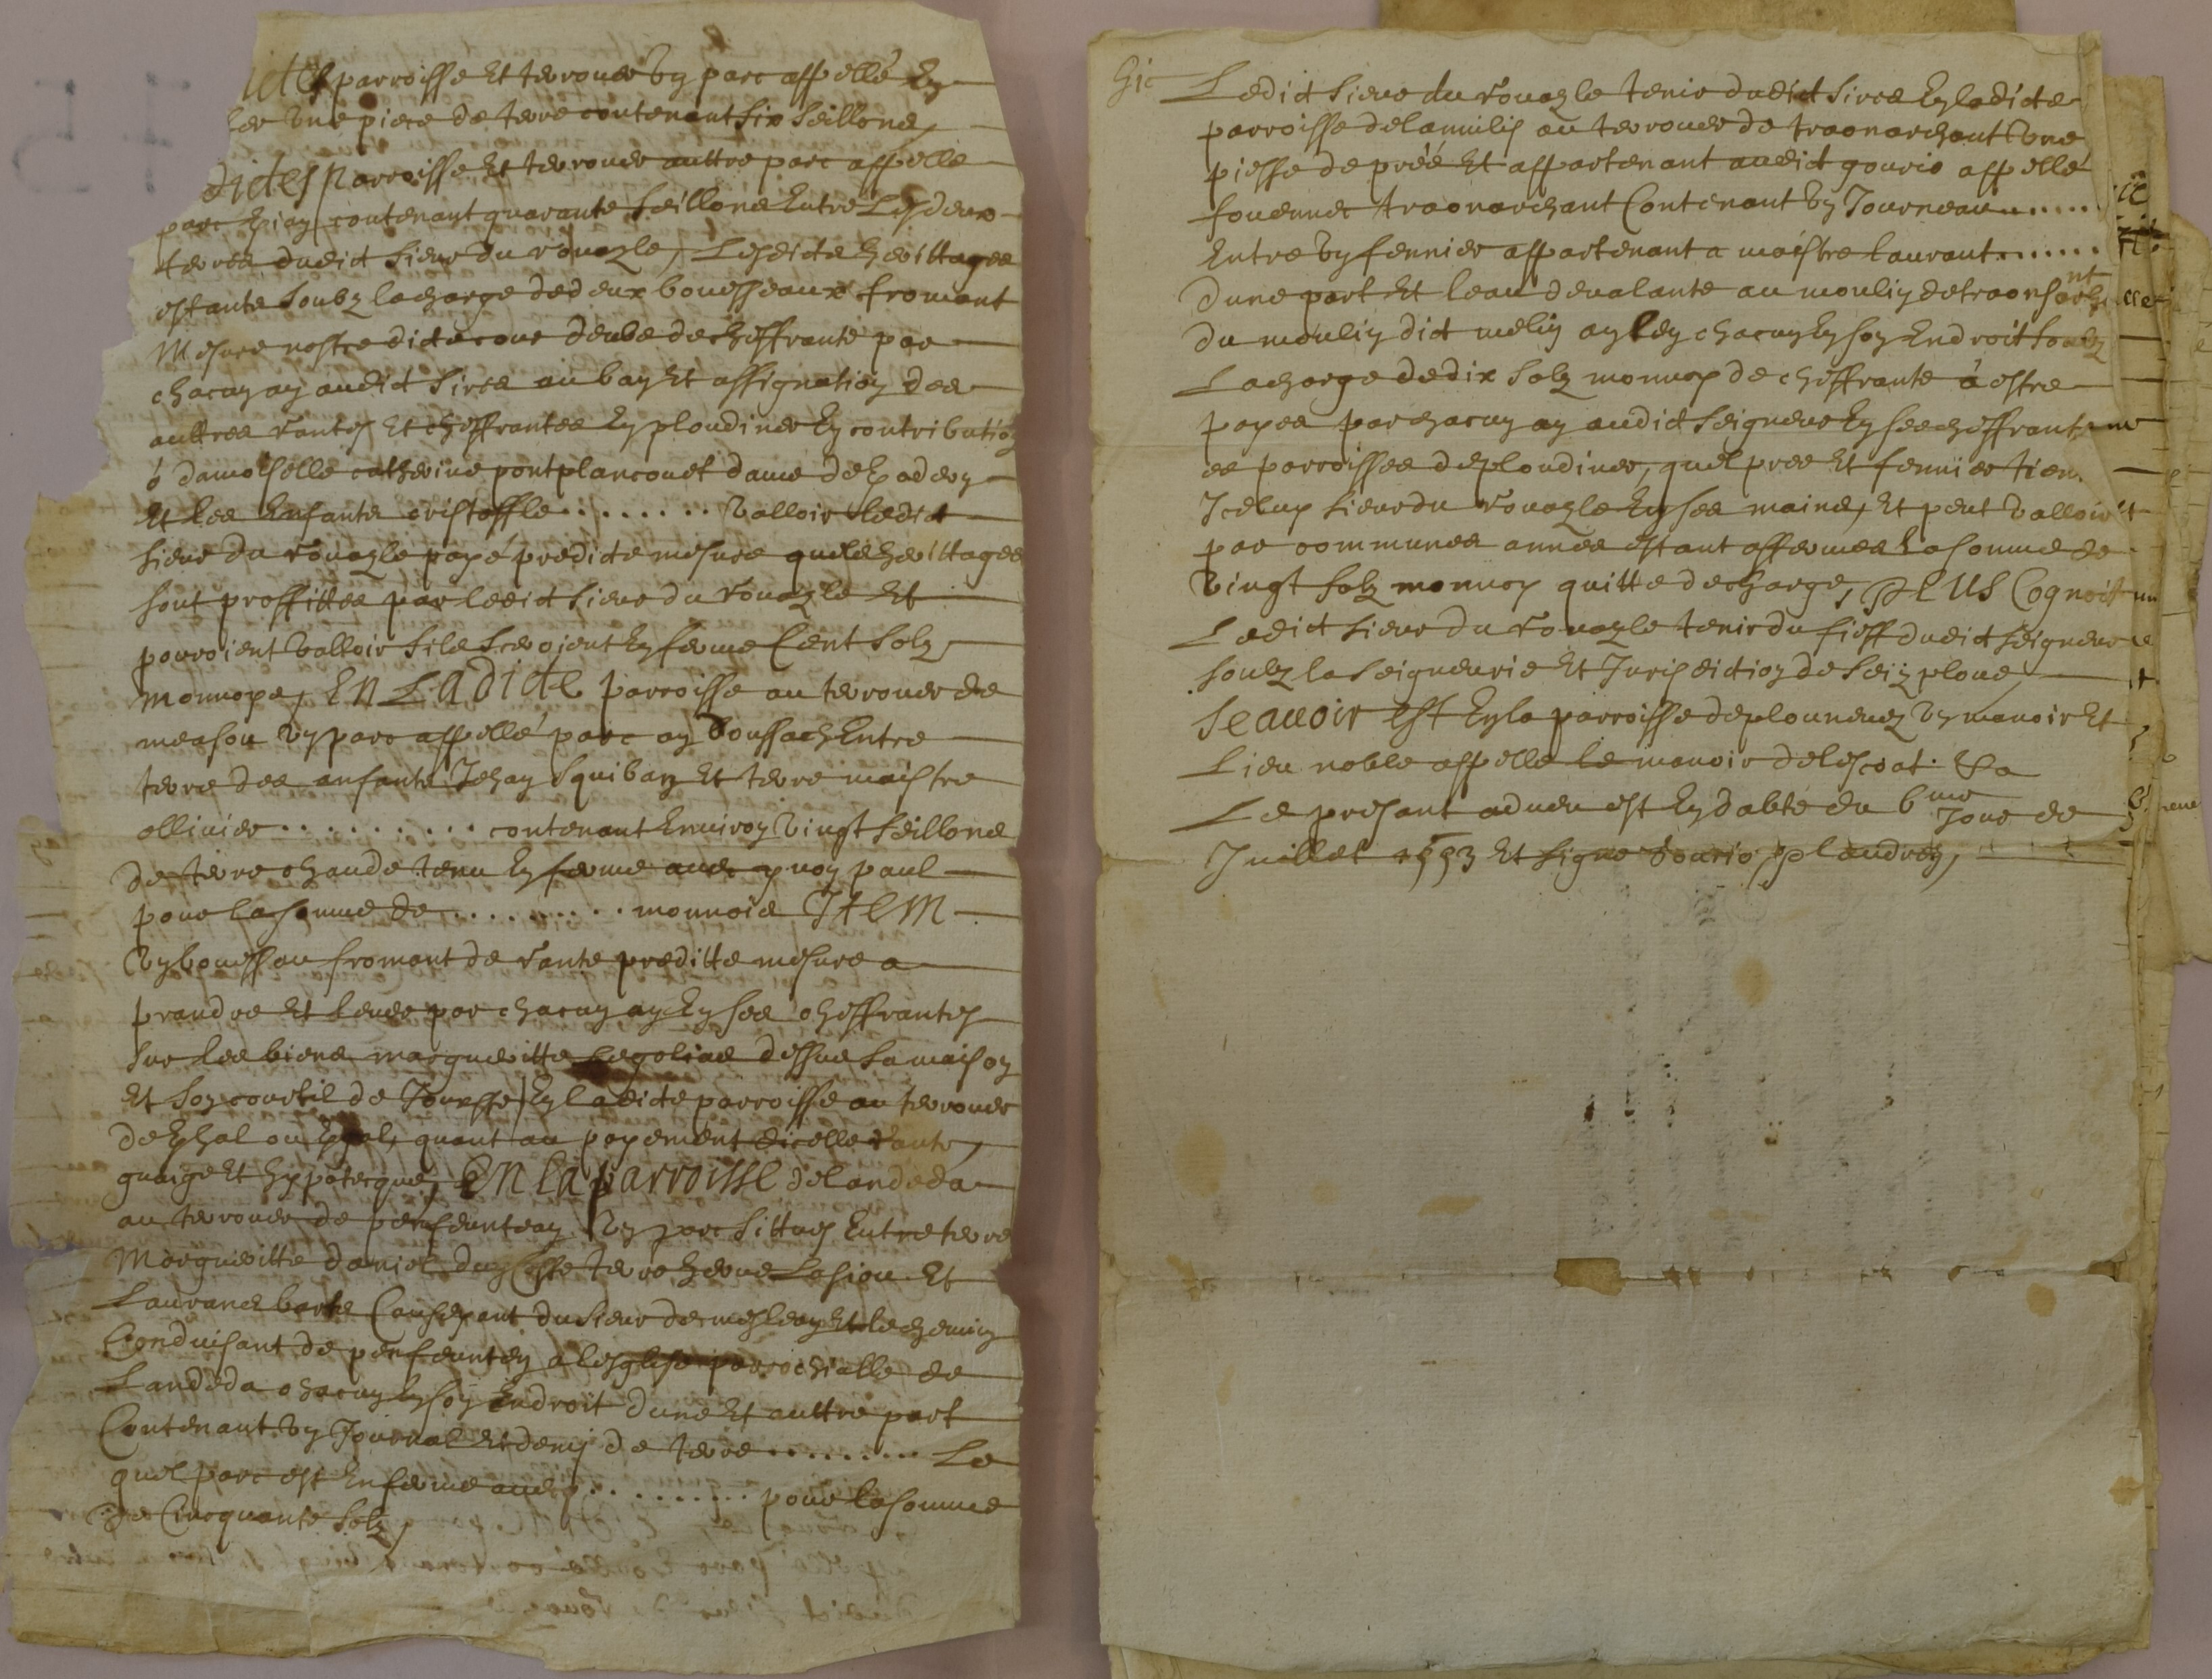 parroisse et terrouer vn parc appellé en
vne piece de terre contenant six seillons,
dictes parroisse et terrouer auttre parc appellé
parc contenant quarante seillons entre les deux
terres dudict sieur du rouazle, lesdicts herittages
estants soubz la charge de deux bouesseaux fromant
mesure nostre dicte cour deube de cheffrante par
chacun an audict sires au ban et assignation des
auttres rantes et cheffrantes en ploudiner en contribution
ô damoiselle catherine pontplancouet dame de
et les enfants cristoffle . . . . . . . . valloir ledict
sieur du rouazle payé predicte mesure quels herittages
sont proffittés par ledict sieur du rouazle et
pourroient valloir sils serojent en ferme cent solz
monnoye, EN Ladicte parroisse au terrouer de
measou vn parc appellé parc an boussach entre
terre des enfants Jehan squiban et terre maistre
ollivier . . . . . . . . . . contenant environ vingt seillons
de terre chaude tenu en ferme avec yvon paul
pour la somme de . . . . . . . . . monnoie Item
vn bouesseau fromant de rante preditte mesure a
prandre et lever par chacun an en ses cheffrantes
sur les biens margueritte dessus sa maison
et son courtil de en ladicte parroisse au terrouer
de ou quant au payement dicelle rante,
guaige et hypotecque, En la parroisse de landeda
au terrouer de penfeunteun vn parc sittué entre terre
Margueritte daniel terre herve et
Laurans barbe Causeyant du sieur de meslean et le chemin
Conduisant de penfeunten a lesglise parrochialle de
Landeda chacun en son endroit dune et auttre part
Contenant vn Journal et demj de terre . . . . . . . . Le
quel parc est en ferme avec . . . . . . . . . . pour la somme
de Cincquante solz,
Ledict sieur du rouazle tenir dudict sires en ladicte
parroisse de lannilis au terrouer de traonarchant vne
piesse de préé et appartenant audict gourio appellé
fouennec traonarchant Contenant vn Journeau . . . . . .
Entre vn fennier appartenant a maistre laurant . . . . . . .
dune part et leau devalante au moulin de
du moulin dict melin chacun en son endroit soubz
La charge de dix solz monnoy de cheffrante á estre
payes par chacun an audict seigneur en ses cheffrantes
es parroisses de ploudiner, quel prée et fennier tient
Iceluy sieur du rouazle en ses mains, et peut valloir
par communes années estant affermés la somme de
vingt solz monnoy quitte de charge, PLUS Cognoist
Ledict sieur du rouazle tenir du fieff dudict seigneur
soubz la seigneurie et Jurisdiction de
Scavoir est en la parroisse de plounevez vn manoir et
Lieu noble appellé le manoir de lescoat. &a
Le presant adveu est en dabté du 6me Jour de
Juillet 1553 et signe Gourio, Plaudren,